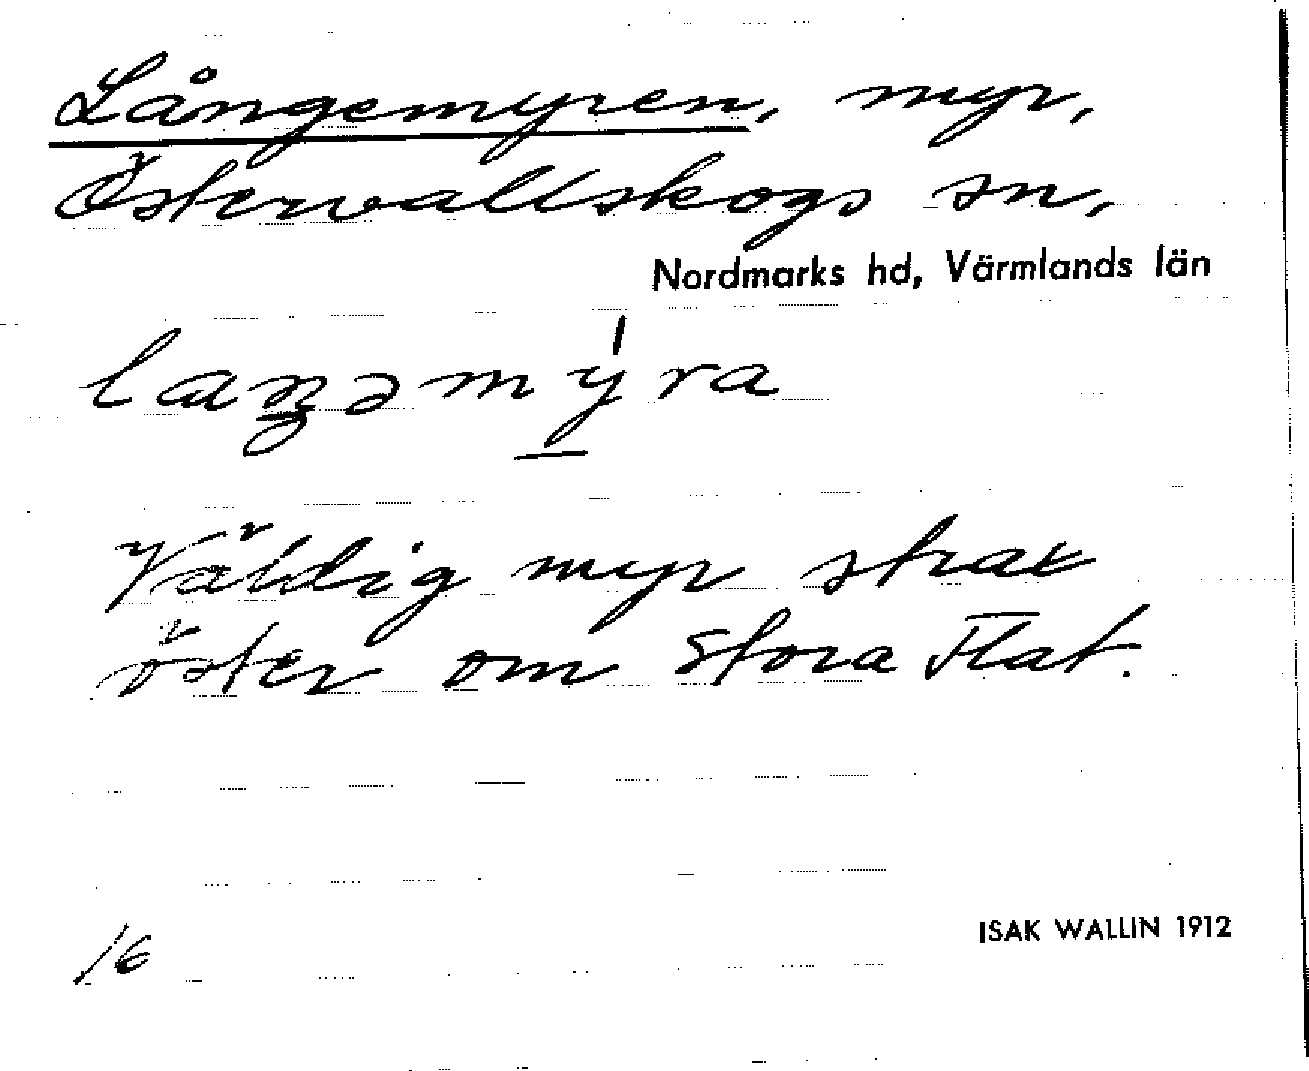 Långemyren, myr,
Östervallskogs sn,
Nordmarks hd, Värmlands län
laŋəmýra
Väldig myr strax
öster om Stora Flat.
16
ISAK WALLIN 1912